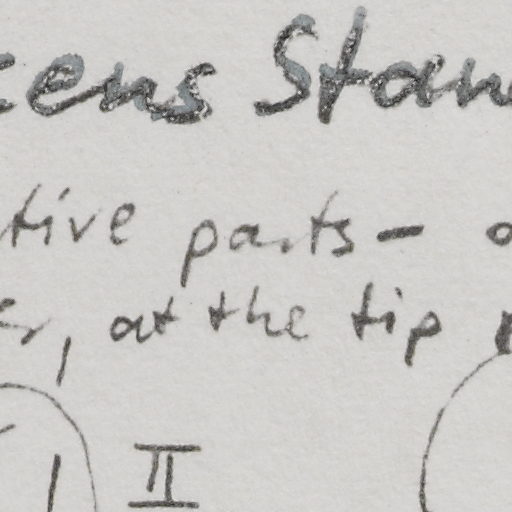 cens Stan
tive parts -
, at the tip
II